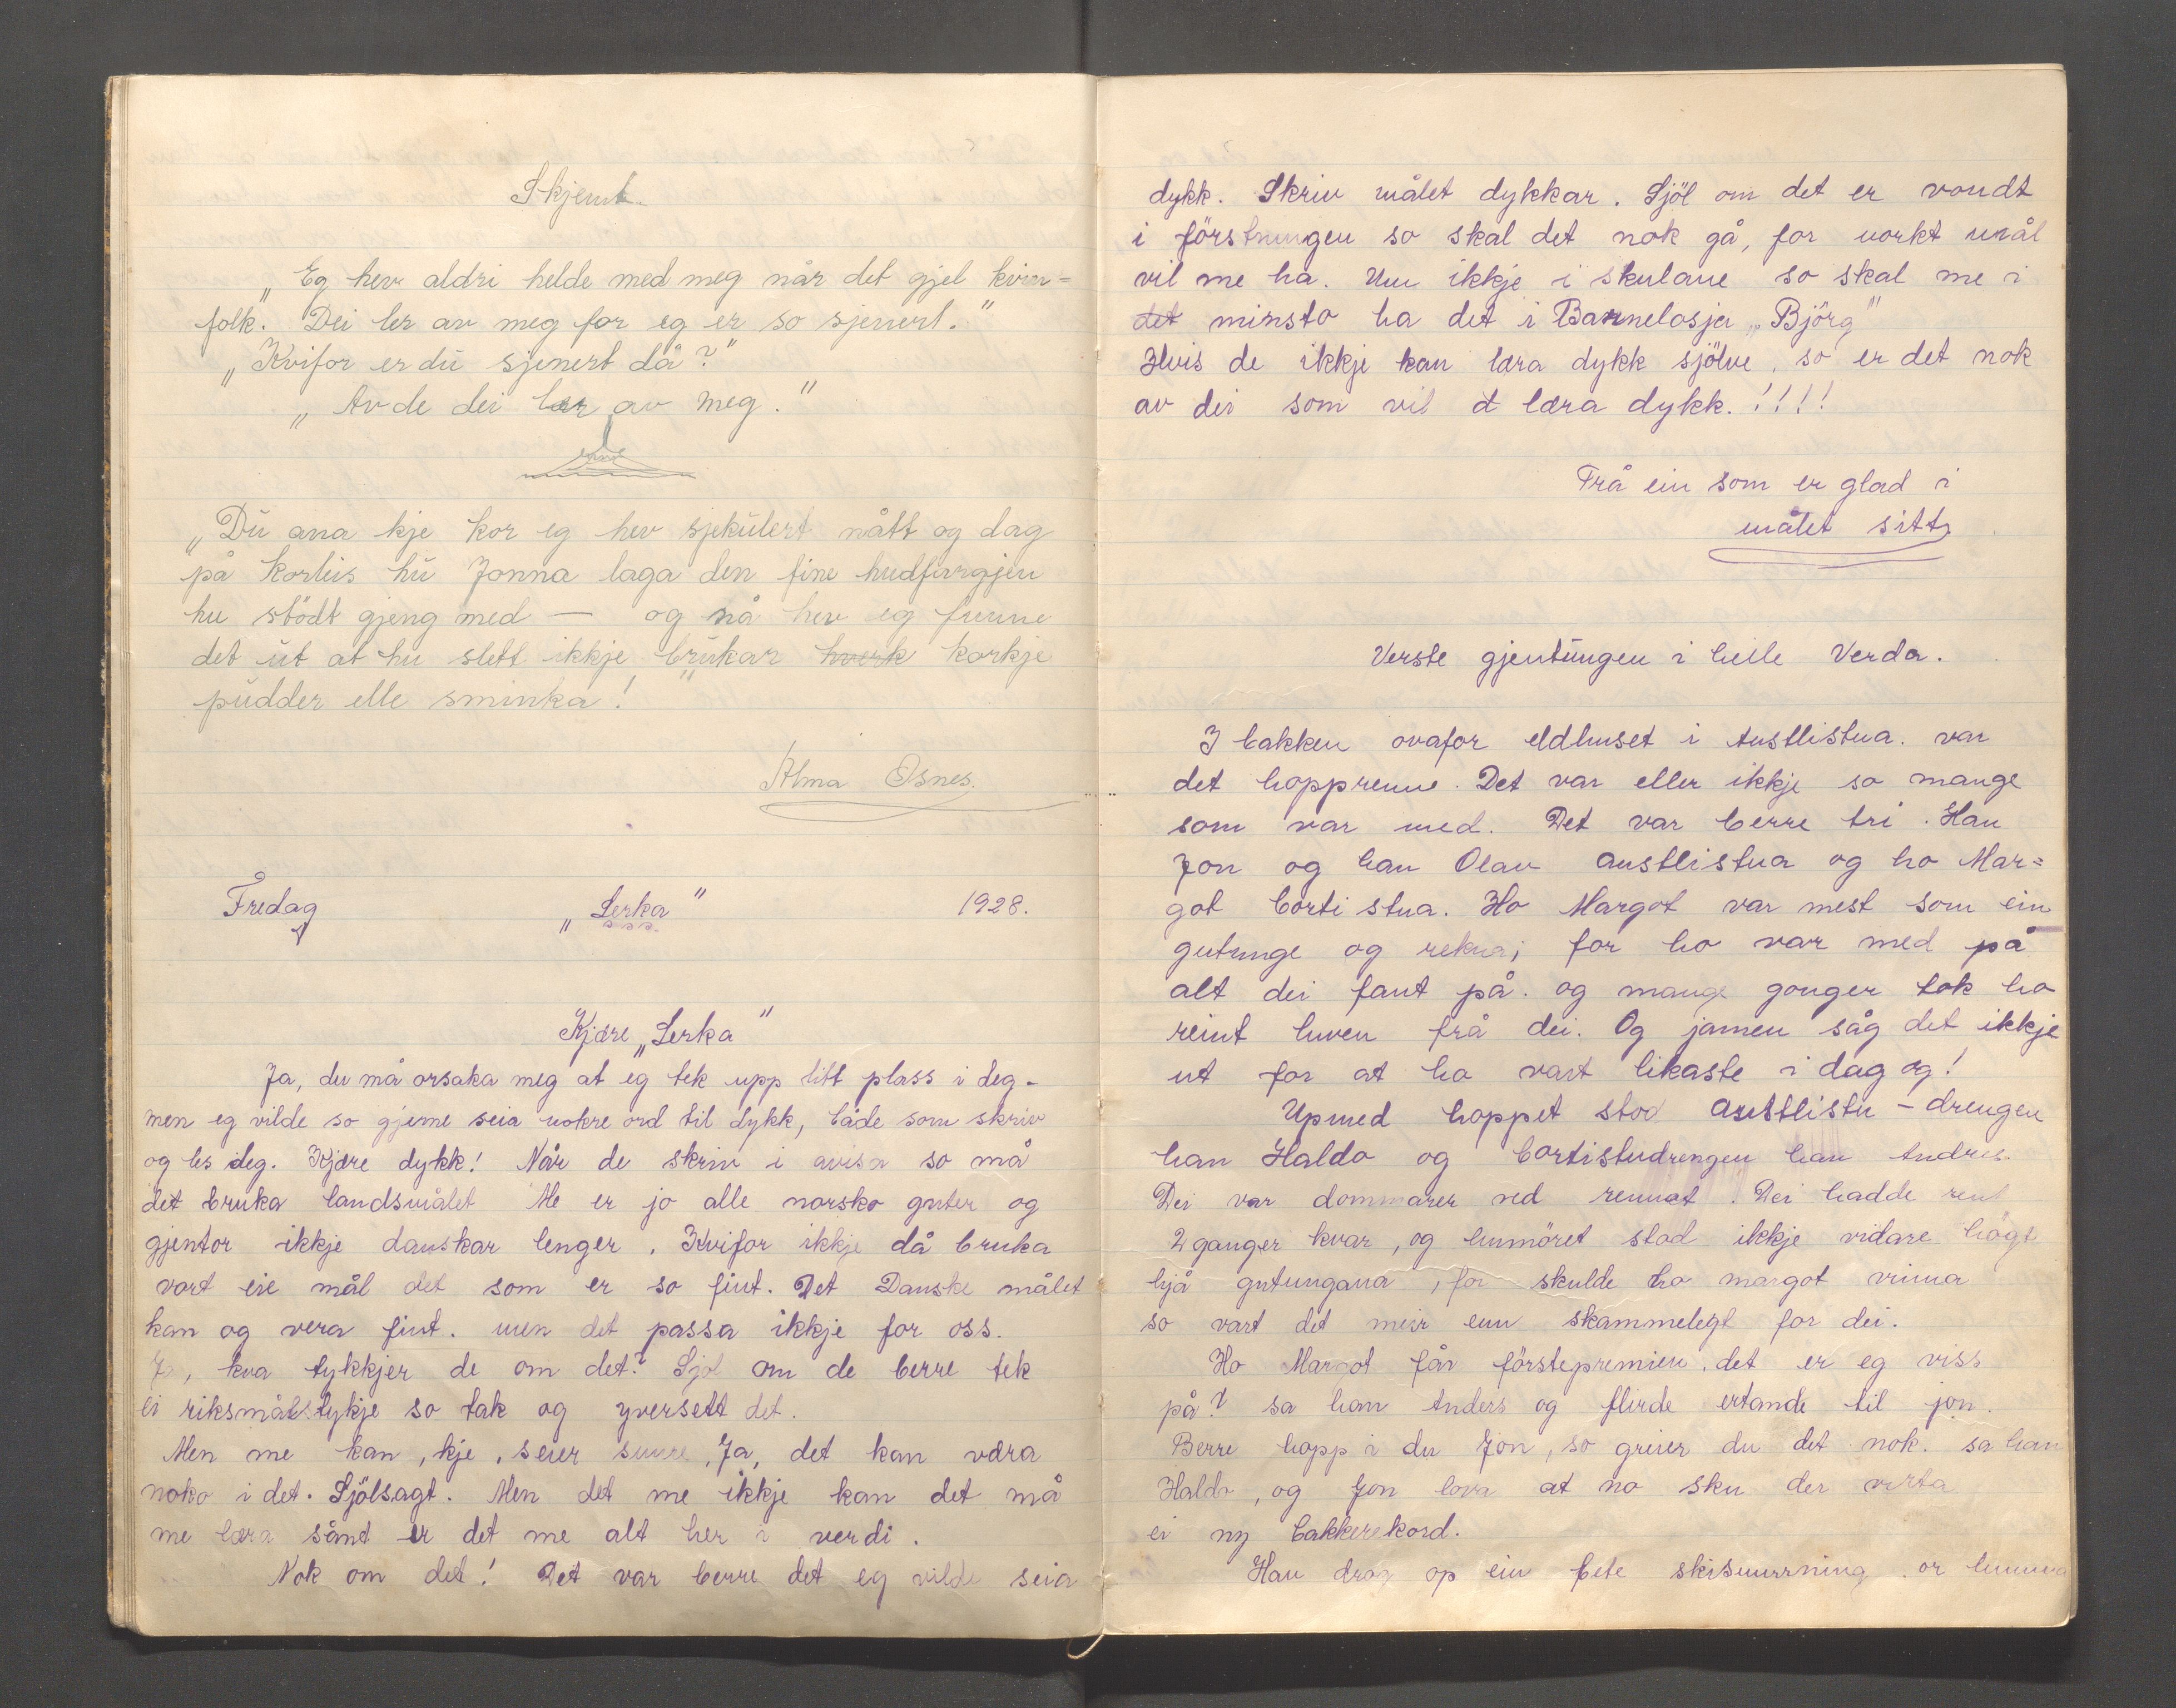 Skjemt.
„Eg hev aldri helde med meg når det gjel kvin=
folk. Dei ler av meg for eg er so sjenert."
„Kvifor er du sjenert då?"
„Av de dei ler av meg."
„Du ana kje kor eg hev sjekulert nått og dag
på korleis hu Jonna laga den fine hudfargjen
hu stödt gjeng med — og nå hev eg funne
det ut at hu slett ikkje brukar hverk korkje
pudder elle sminka!
Alma Osnes.
Fredag „Lerka" 1928.
Kjære „Lerka"
Ja, du må orsaka meg at eg tek upp litt plass i deg.
men eg vilde so gjerne seia nokre ord til dykk, både som skriv
og les deg. Kjære dykk! Når de skriv i avisa so må
det bruka landsmålet Me er jo alle norsko guter og
gjentor ikkje danskar lenger. Kvifor ikkje då bruka
vort eie mål det som er so fint. Det Danske målet
kan og vera fint. men det passa ikkje for oss.
Ja, kva tykkjer de om det? Sjöl om de berre tek
ei riksmålstykje so tak og yversett det.
Men me kan, kje, seier sume, Ja, det kan væra
noko i det. Sjölsagt. Men det me ikkje kan det må
me læra sånt er det me alt her i verdi.
Nok om det! Det var berre det eg vilde seia
dykk. Skriv målet dykkar. Sjöl om det er vondt
i förstningen so skal det nok gå, for norkt mål
vil me ha. Um ikkje i skulane so skal me i
det minsto ha det i Barnelosja „Björg"
Hvis de ikkje kan læra dykk sjölve, so er det nok
av dei som vil læra dykk.!!!!
Frå ein som er glad i
målet sitt
Verste gjentungen i heile Verda.
I bakken ovafor eldhuset i Austlistua. var
det hopprenne. Det var eller ikkje so mange
som var med. Det var berre tri. Han
Jon og han Olav austlistua og ho Mar=
got borti stua. Ho Margot var mest som ein
gutunge og rekna; for ho var med på
alt dei fant på. og mange gonger tok ho
reint luven frå dei. Og jamen såg det ikkje
ut for at ho vart likaste i dag og!
Upmed hoppet stod austlistu - drengen
han Haldo og bortistudrengen han Andres.
Dei var dommarer ved rennet. Dei hadde rent
2 ganger kvar, og humöret stod ikkje vidare högt
hjå gutungana, for skulde ho margot vinna
so vart det meir enn skammelegt for dei.
Ho Margot får förstepremien. det er eg viss
på? sa han Anders og flirde ertande til jon.
Berre hopp i du Jon, so greier du det nok. sa han
Haldo, og Jon lova at no sku der verta
ei ny bakkerekord.
Han drog op ein fete skismurning or lumma